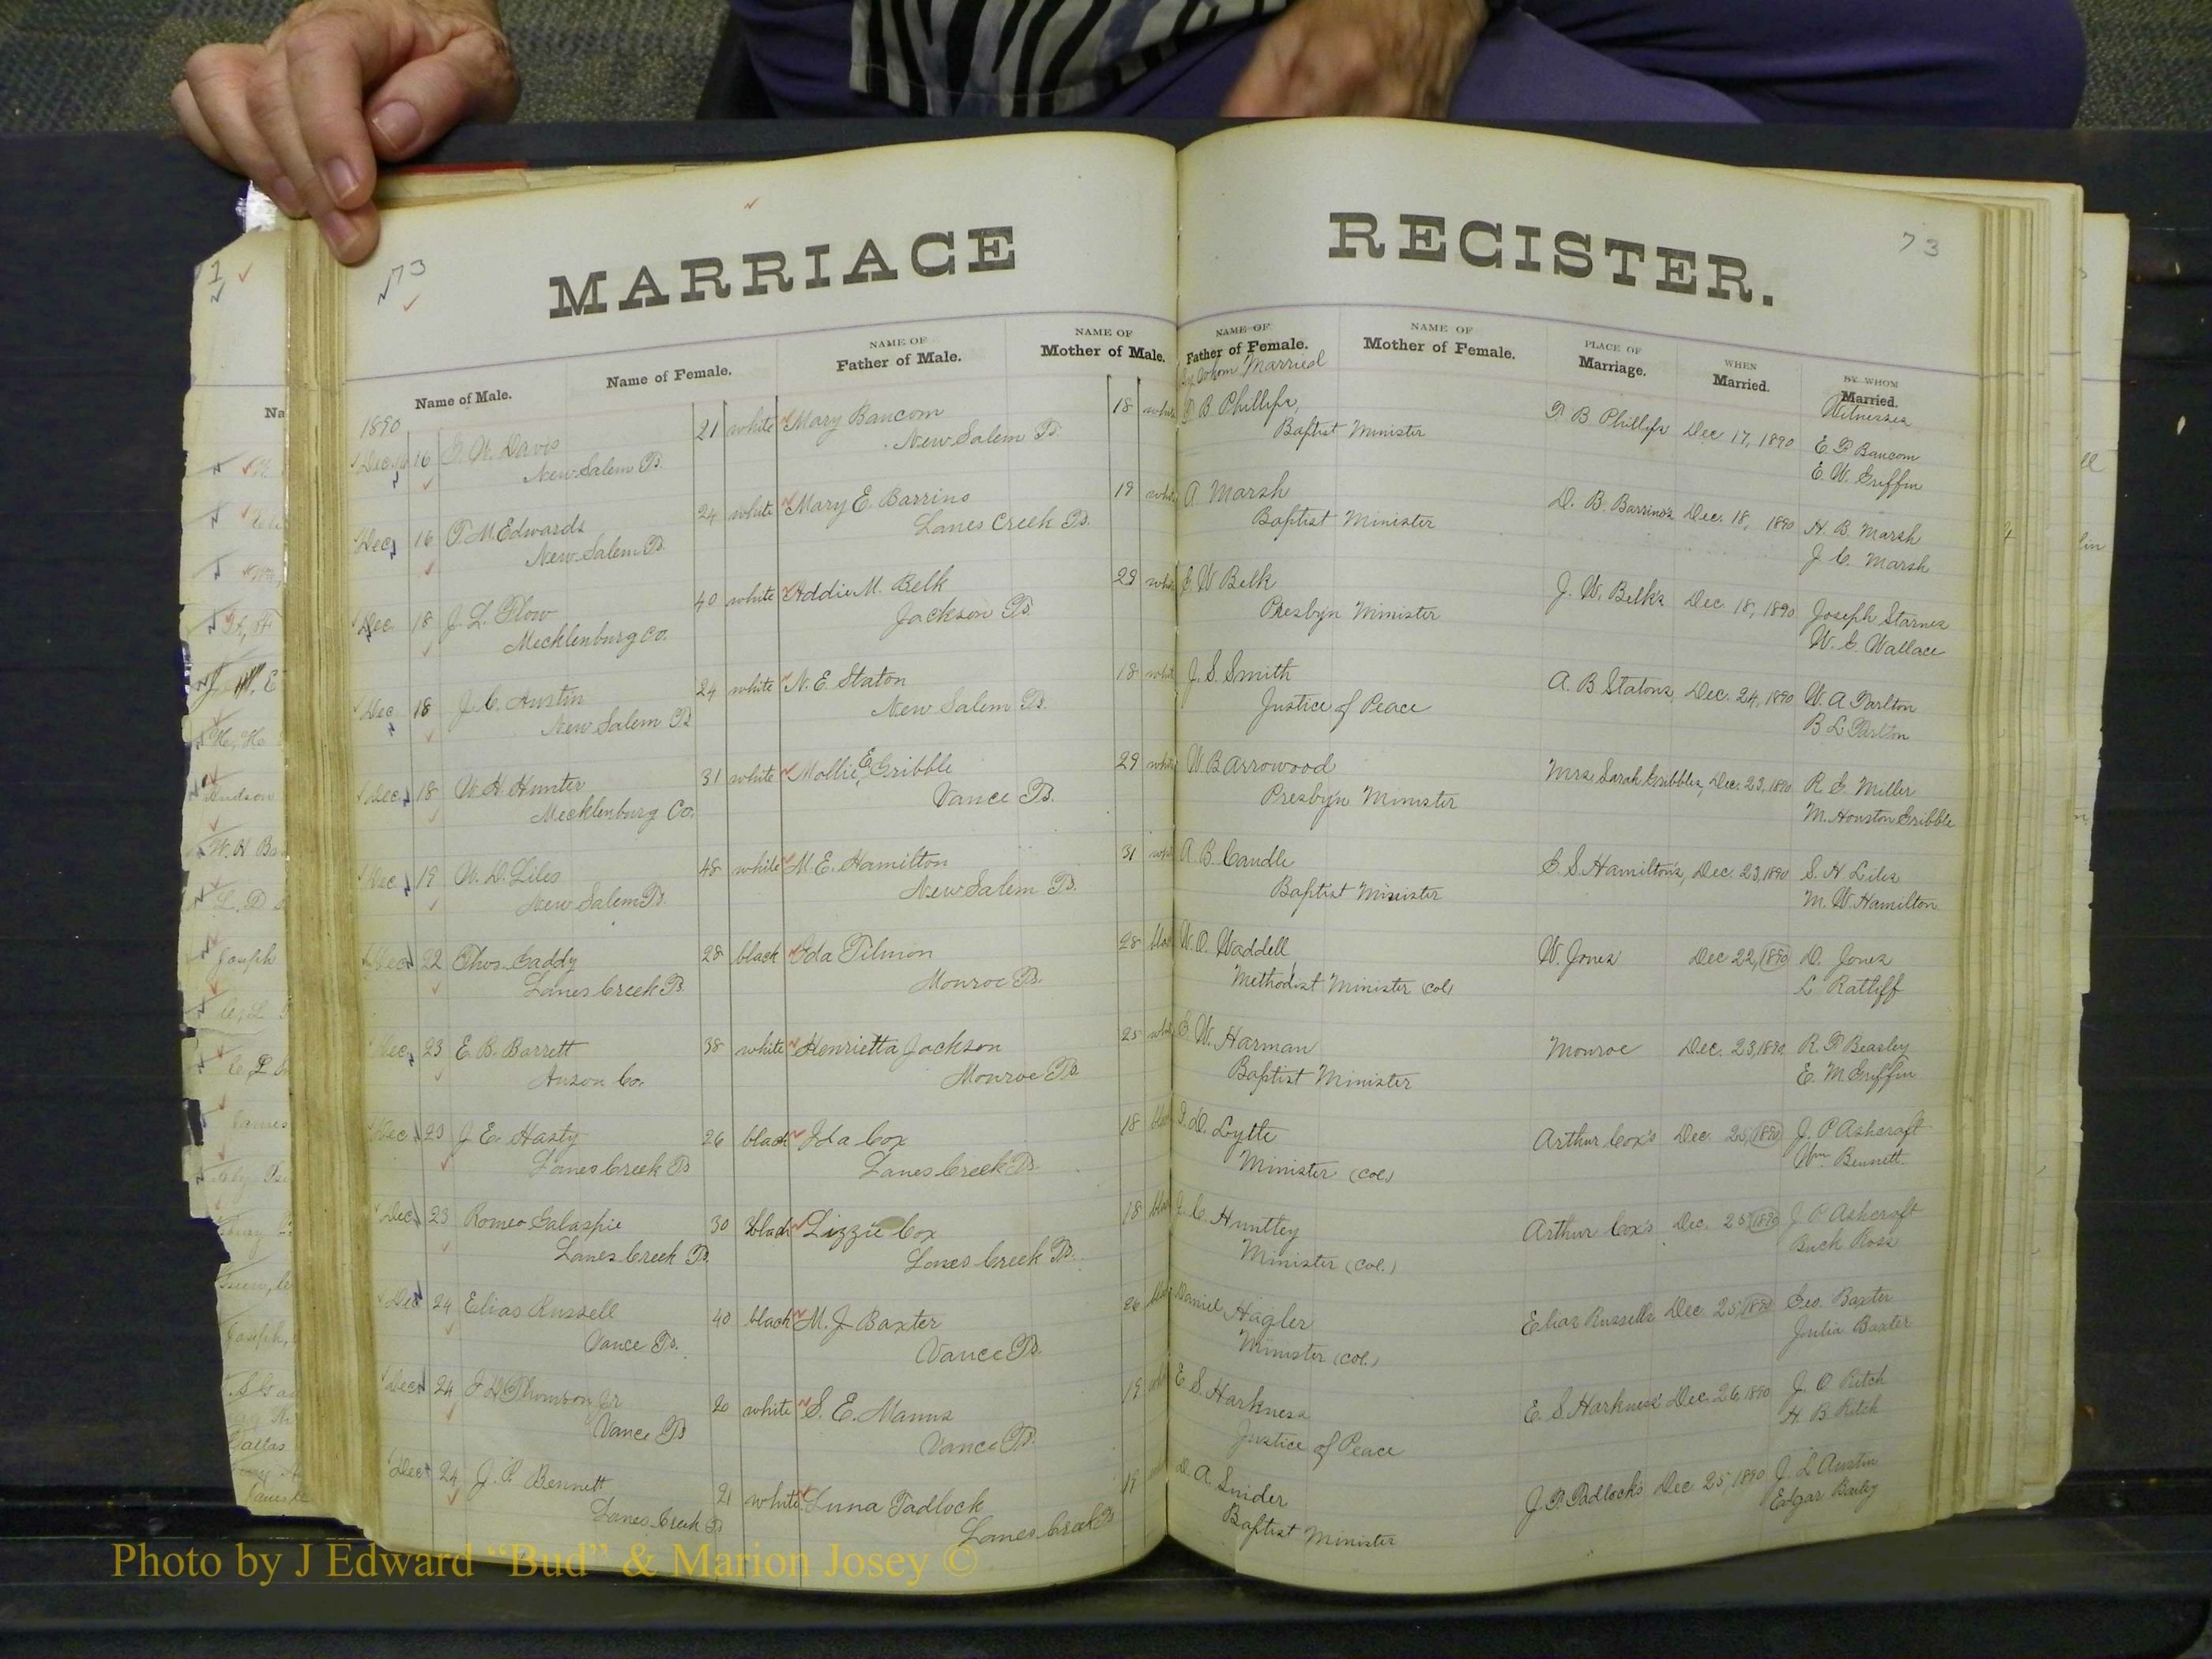 73
MARRIAGE
REGISTER.
73
Name of Male.
Name of Female.
NAME OF
Father of Male.
NAME OF
Mother of Male.
NAME OF
Father of Female.
By Whom Married
NAME OF
Mother of Female.
PLACE OF
Marriage.
WHEN
Married.
BY WHOM
Married.
Witnesses
1890
Dec. 16 W. Davis 21 white Mary Baucom 18 white B Phillips, B Phillips Dec 17, 1890
New Salem Ts. New Salem Ts. Baptist Minister E. P Baucom
E. W. Griffin
Dec 16 T. M. Edwards 24 white Mary E. Barrino 19 white A Marsh D. B. Barrino's Dec. 18, 1890 H. B. Marsh
New Salem Ts. Lanes Creek Ts. Baptist Minister J. C. Marsh
Dec. 18 J. L. Flow 40 white Addie M. Belk 29 white W Belk J. W. Belk's Dec. 18, 1890 Joseph Starnes
Mecklenburg Co. Jackson Ts. Presby'n Minister W. C. Wallace
Dec 18 J. C. Austin 24 white N. E. Staton 18 white J. S. Smith A. B Statons, Dec. 24, 1890 W. A. Parlton
New Salem Ts New Salem Ts. Justice of Peace B. L. Parlton
Dec 18 W. H. Hunter 31 white Mollie E Gribble 29 white W B Arrowood Mrs. Sarah Gribbles, Dec. 23, 1890 R. G. Miller
Mecklenburg Co. Vance Ts. Presby'n Minister M. Houston Gribble
Dec 19 W. D. Liles 48 white M. E. Hamilton 31 white A. B. Caudle S. Hamilton's, Dec. 23, 1890 S. H Liles
New Salem Ts. New Salem Ts. Baptist Minister M. W. Hamilton
Dec 22 Thos. Gaddy 28 black Ida Tilmon 28 black W. O. Waddell W. Jones Dec 22, 1890 D. Jones
Lanes Creek Ts. Monroe Ts. Methodist Minister (Col) L Ratliff
Dec. 23 E. B. Barrett 38 white Henrietta Jackson 25 white W. Harman Monroe Dec. 23, 1890 R. P Beasley
Anson Co. Monroe Ts Baptist Minister E. M. Griffin
Dec 23 J. E. Hasty 26 black Ida Cox 18 black Lytle Arthur Cox's Dec 25, 1890 J. P Ashcraft
Lanes Creek Ts Lanes Creek Ts. Minister (Col.) Wm Bennett.
Dec 23 Romeo Galaspie 30 black Lizzie Cox 18 black C. Huntley Arthur Cox's Dec. 25, 1890 J. P Ashcraft
Lanes Creek Ts. Lanes Creek Ts. Minister (Col.) Buck Ross
Dec 24 Elias Russell 40 black M. J Baxter 26 black Daniel Hagler Elias Russells Dec. 25 1890 Geo. Baxter
Vance Ts. Vance Ts. Minister (Col.) Julia Baxter
Dec 24 Thomson Jr 20 white S. E. Manus 19 E. S. Harkness E. S. Harkness' Dec. 26, 1890 J. O Ritch
Vance Ts Vance Ts. Justice of Peace H. B Ritch
Dec 24 J. P. Bennett 21 white Luna Tadlock 19 A. Snider J. P. Padlock's Dec 25, 1890 J. L Austin
Lanes Creek Ts Lanes Creek Ts Baptist Minister Edgar Baity
Photo by J Edward “Bud” & Marion Josey ©